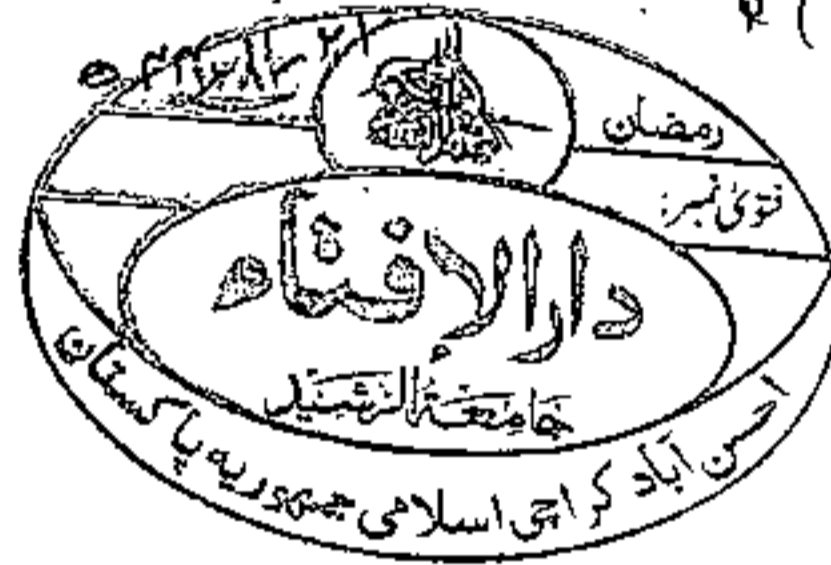 رمضان
فتویٰ نمبر:
دارالإفتاء
جامعة الرشيد
احسن آباد کراچی اسلامی جمہوریہ پاکستان